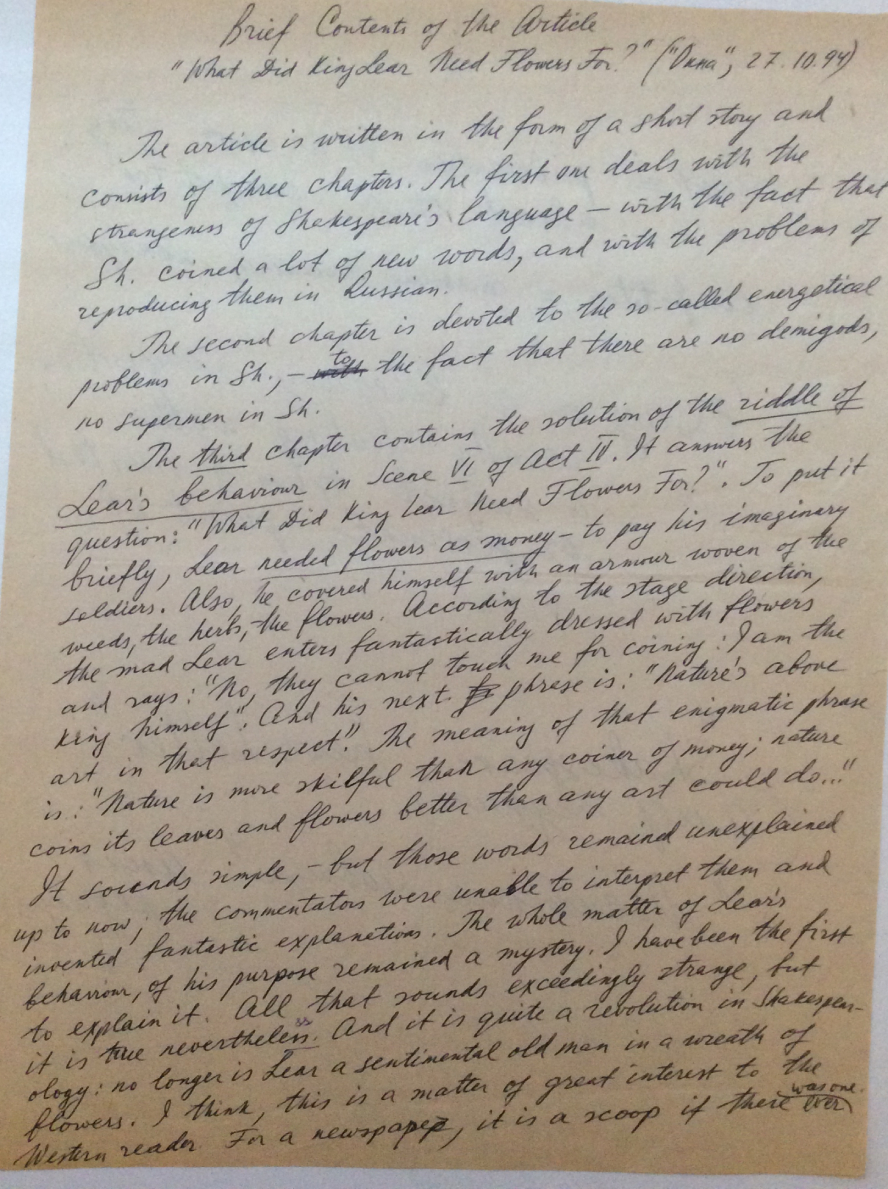 Brief Contents of the Article
"What Did King Lear Need Flowers For?" ("Рига", 27.10.94)
The article is written in the form of a short story and
consists of three chapters. The first one deals with the
strangeness of Shakespeare's language – with the fact that
Sh. coined a lot of new words, and with the problems of
reproducing them in Russian.
The second chapter is devoted to the so-called energetical
problems in Sh., – to the fact that there are no demigods,
no supermen in Sh.
The third chapter contains the solution of the riddle of
Lear's behaviour in Scene VI of Act IV. It answers the
question: "What Did King Lear Need Flowers For?". To put it
briefly, Lear needed flowers as money – to pay his imaginary
soldiers. Also, he covered himself with an armour woven of the
weeds, the herbs, the flowers. According to the stage direction,
the mad Lear enters fantastically dressed with flowers
and says: "No, they cannot touch me for coining: I am the
king himself". And his next phrase is: "Nature's above
art in that respect". The meaning of that enigmatic phrase
is: "Nature is more skilful than any coiner of money; nature
coins its leaves and flowers better than any art could do..."
It sounds simple, – but those words remained unexplained
up to now; the commentators were unable to interpret them and
invented fantastic explanations. The whole matter of Lear's
behaviour, of his purpose remained a mystery. I have been the first
to explain it. All that sounds exceedingly strange, but
it is true nevertheless. And it is quite a revolution in Shakespear-
ology: no longer is Lear a sentimental old man in a wreath of
flowers. I think, this is a matter of great interest to the
Western reader. For a newspaper, it is a scoop if there ever was one.